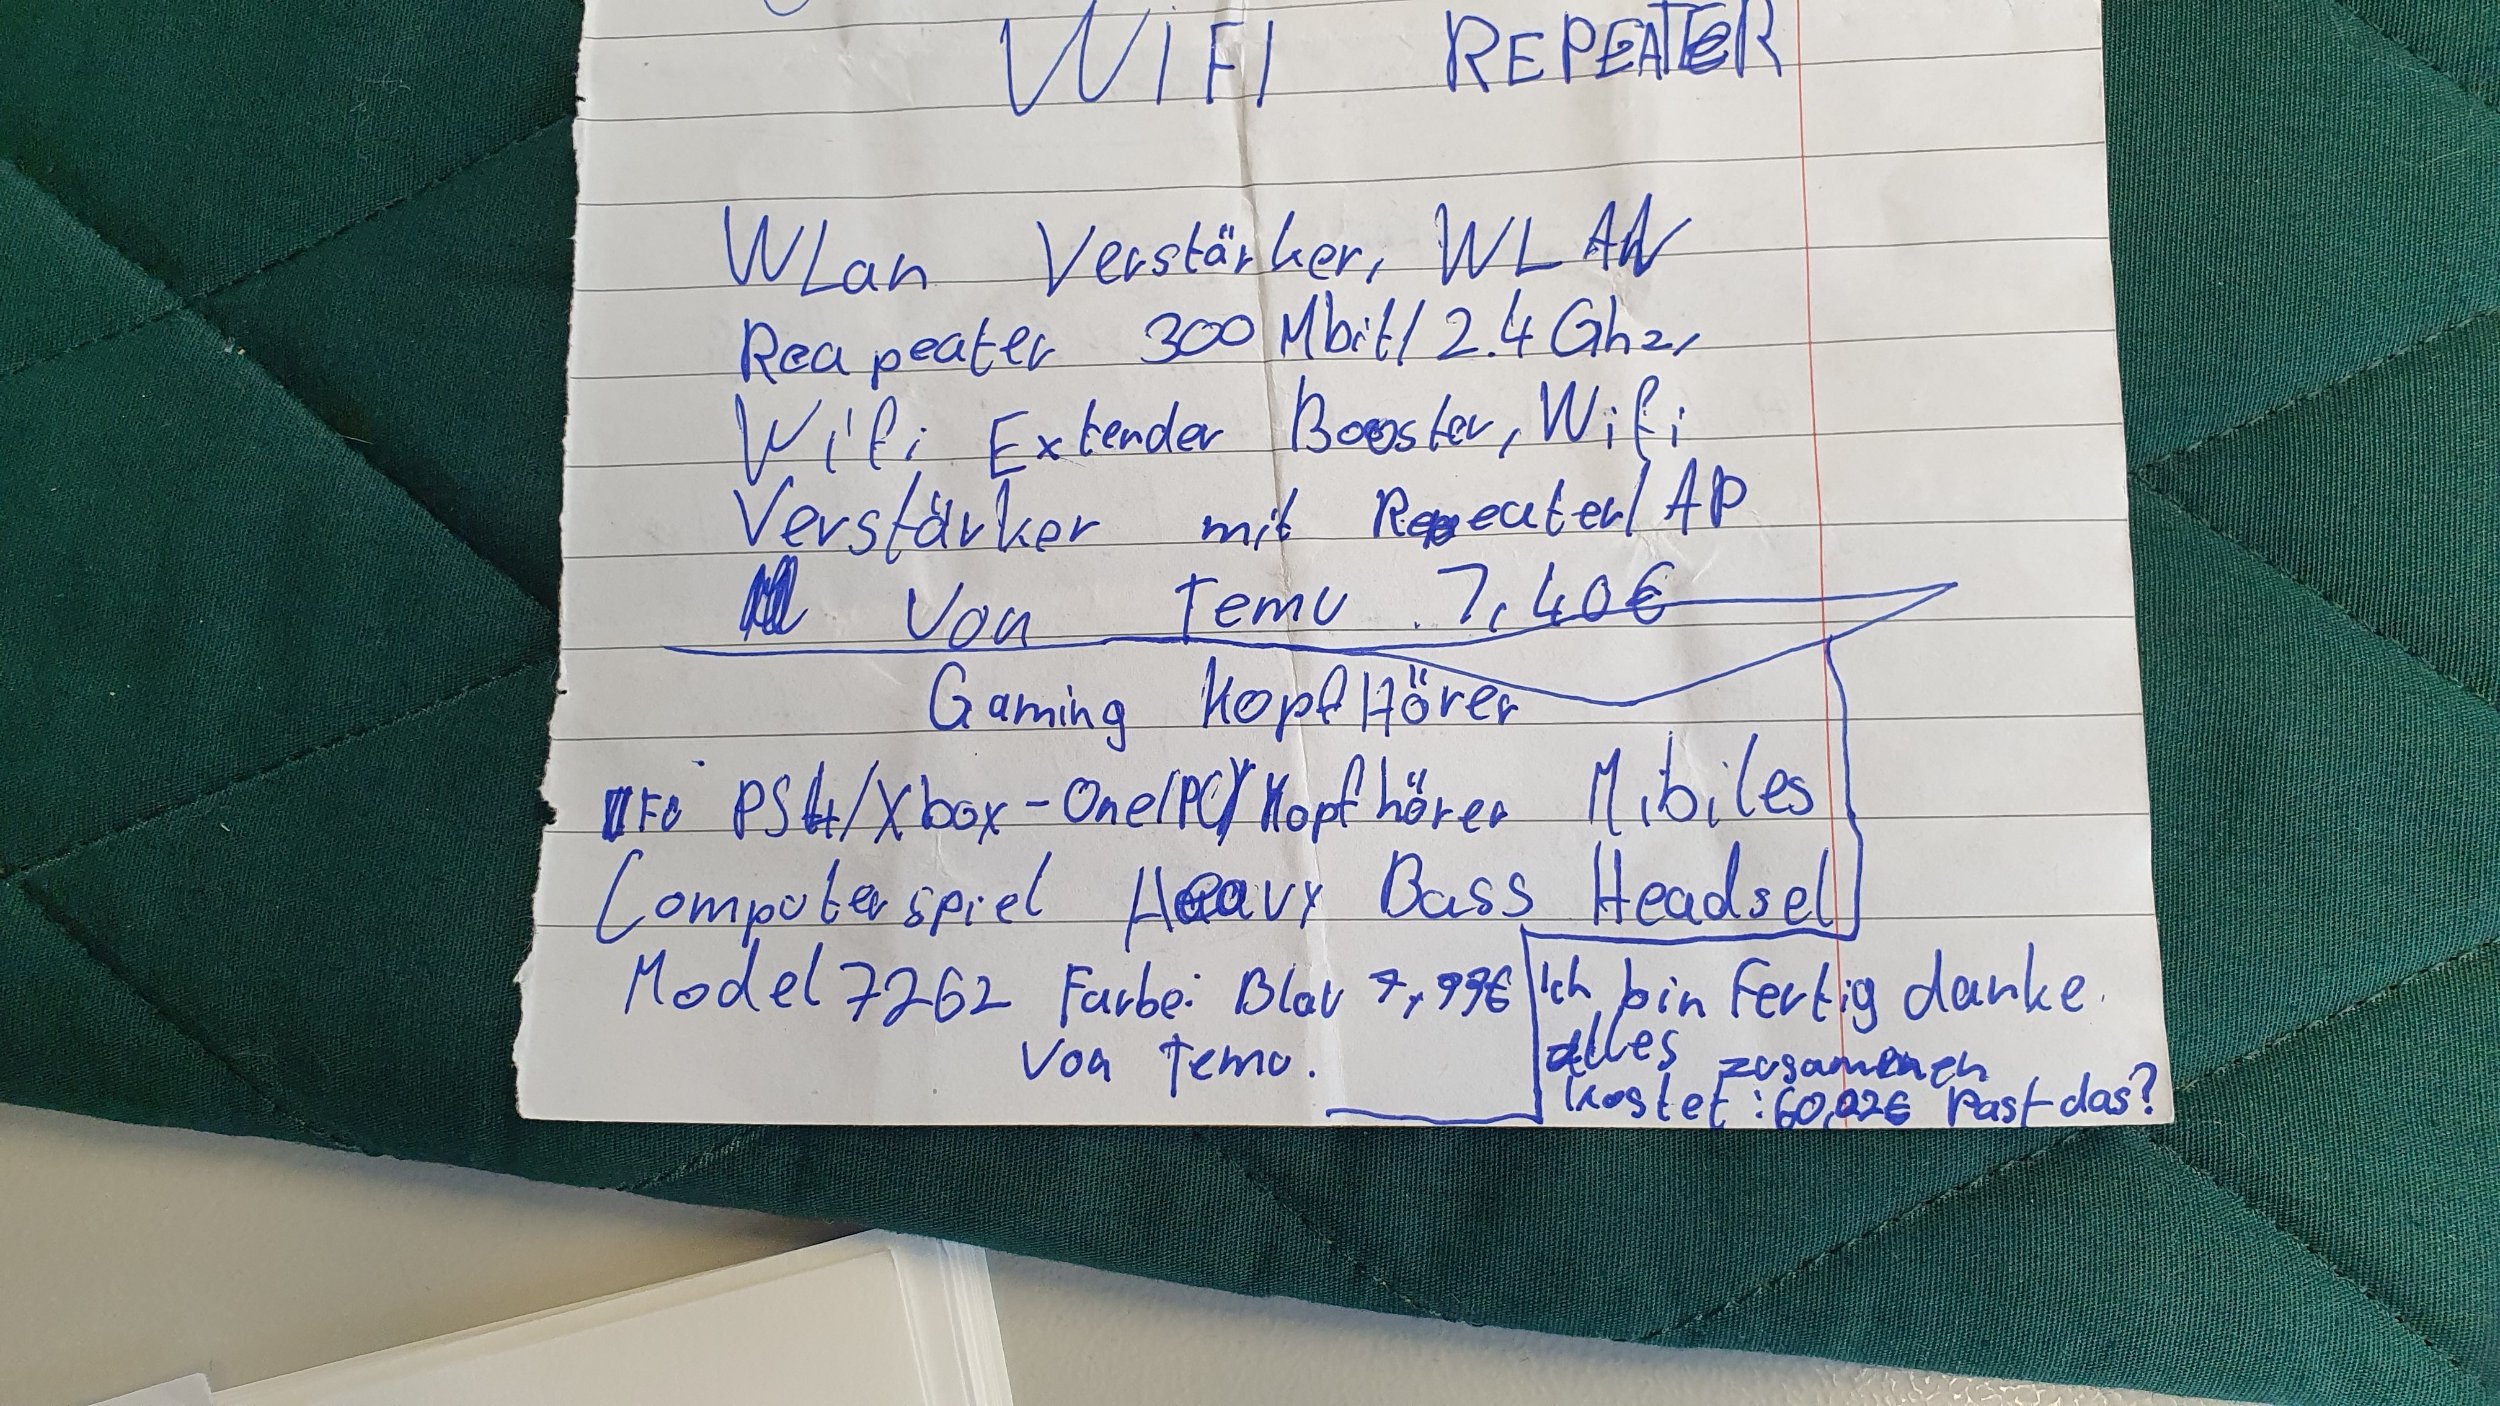 WIFI REPEATER
WLan Verstärker, WLAN
Reapeater 300 Mbit/2.4 Ghz,
Wifi Extender Booster, Wifi
Verstärker mit Repeater/AP
Von Temu 7,40€
Gaming KopfHörer
PS4/Xbox-One/PC/Kopfhörer Mibiles
Computerspiel Heavy Bass Headsel
Model 7262 Farbe: Blau 7,99€
Von Temu.
Ich bin Fertig danke.
alles zusammen
kostet: 60,02€ Past das?